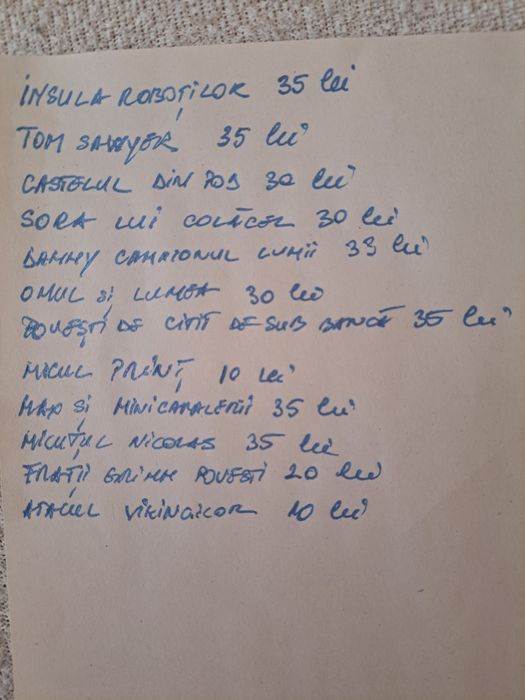 INSULA ROBOȚILOR 35 lei
TOM SAWYER 35 lei
CASTELUL DIN POD 30 lei
SORA LUI COLĂCEL 30 lei
DANNY CAMPIONUL LUMII 33 lei
OMUL și LUMEA 30 lei
POVEȘTI DE CITIT DE SUB BANCĂ 35 lei
MICUL PRINȚ 10 lei
MAX ȘI MINICAVALERII 35 lei
MICUȚUL NICOLAS 35 lei
FRAȚII GRIMM POVESTI 20 lei
ATACUL VIKINGILOR 10 lei